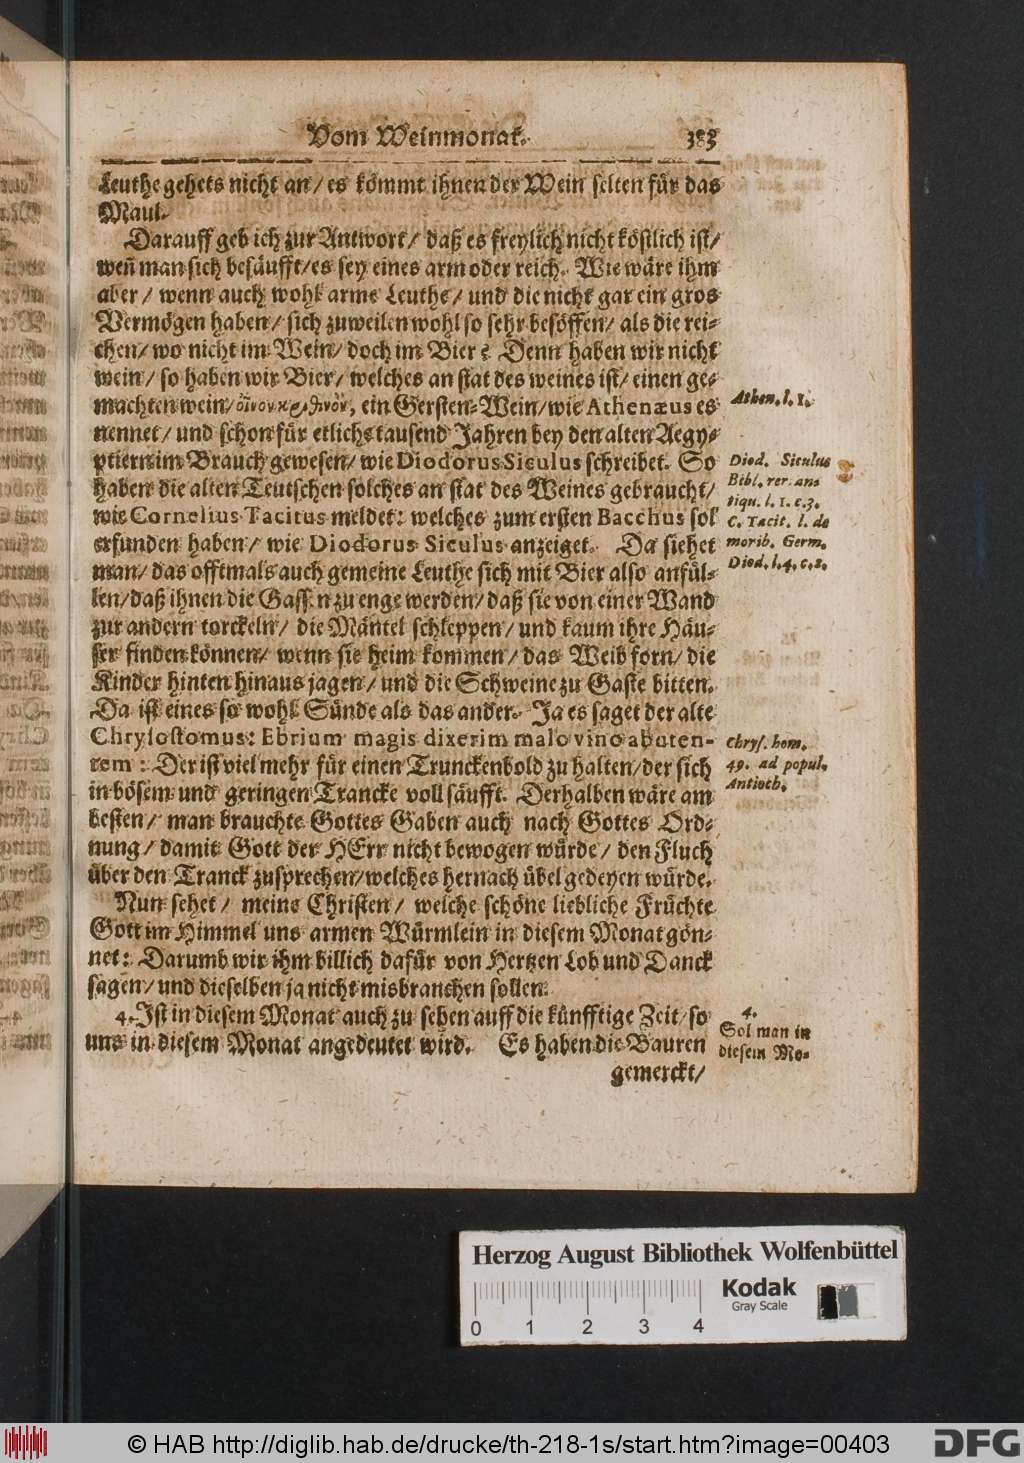 Vom Weinmonat. 383
Leuthe gehets nicht an/ es kömmt ihnen der Wein selten für das
Maul.
Darauff geb ich zur Antwort/ daß es freylich nicht köstlich ist/
weñ man sich besäufft/es sey eines arm oder reich. Wie wäre ihm
aber/ wenn auch wohl arme Leuthe/ und die nicht gar ein gros
Vermögen haben/ sich zuweilen wohl so sehr besöffen/ als die rei-
chen/ wo nicht im Wein/ doch im Bier? Denn haben wir nicht
wein/ so haben wir Bier/ welches an stat des weines ist/ einen ge-
machten wein/ οἶνον κριθινὸν, ein Gersten-Wein/wie Athenæus es
nennet/ und schon für etliche tausend Jahren bey den alten Aegy-
ptiern im Brauch gewesen/ wie Diodorus Siculus schreibet. So
haben die alten Teutschen solches an stat des Weines gebraucht/
wie Cornelius Tacitus meldet: welches zum ersten Bacchus sol
erfunden haben/ wie Diodorus Siculus anzeiget. Da siehet
man/ das offtmals auch gemeine Leuthe sich mit Bier also anfül-
len/daß ihnen die Gassen zu enge werden/ daß sie von einer Wand
zur andern torckeln/ die Mäntel schleppen/ und kaum ihre Häu-
ser finden können/ wenn sie heim kommen/ das Weib forn/ die
Kinder hinten hinaus jagen/ und die Schweine zu Gaste bitten.
Da ist eines so wohl Sünde als das ander. Ja es saget der alte
Chrysostomus: Ebrium magis dixerim malo vino abuten-
tem: Der ist viel mehr für einen Trunckenbold zu halten/der sich
in bösem und geringen Trancke voll säufft. Derhalben wäre am
besten/ man brauchte Gottes Gaben auch nach Gottes Ord-
nung/ damit Gott der HErr nicht bewogen würde/ den Fluch
über den Tranck zusprechen/welches hernach übel gedeyen würde.
Nun sehet/ meine Christen/ welche schöne liebliche Früchte
Gott im Himmel uns armen Würmlein in diesem Monat gön-
net: Darumb wir ihm billich dafür von Hertzen Lob und Danck
sagen/ und dieselben ja nicht misbrauchen sollen.
4. Ist in diesem Monat auch zu sehen auff die künfftige Zeit/ so
uns in diesem Monat angedeutet wird. Es haben die Bauren
gemerckt/
Athen. l. 1.
Diod. Siculus
Bibl. rer. an-
tiqu. l. 1. c. 3.
C. Tacit. l. de
morib. Germ.
Diod. l. 4. c. 2.
Chrys. hom.
49. ad popul.
Antioch.
4.
Sol man in
diesem Mo-
Herzog August Bibliothek Wolfenbüttel
Kodak
Gray Scale
0 1 2 3 4
© HAB http://diglib.hab.de/drucke/th-218-1s/start.htm?image=00403
DFG